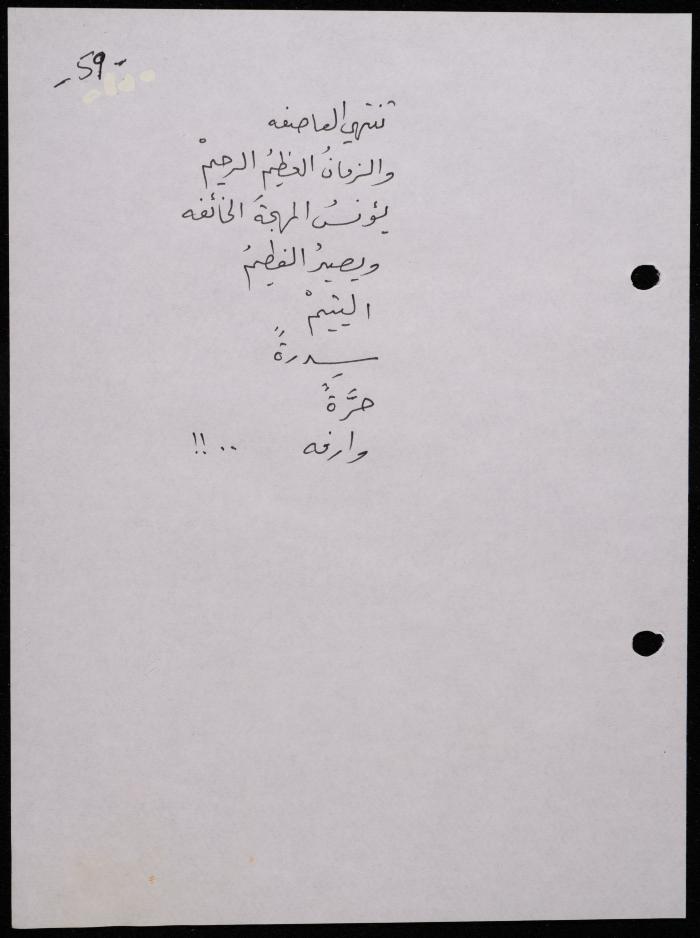 -59-
تنتهي العاصفه
والزمانُ العظيمُ الرحيمْ
يُؤنسُ المهجةَ الخائفه
ويصيرُ الفطيمُ
اليتيمْ
سِدرةً
حرَّةً
وارفه ..!!